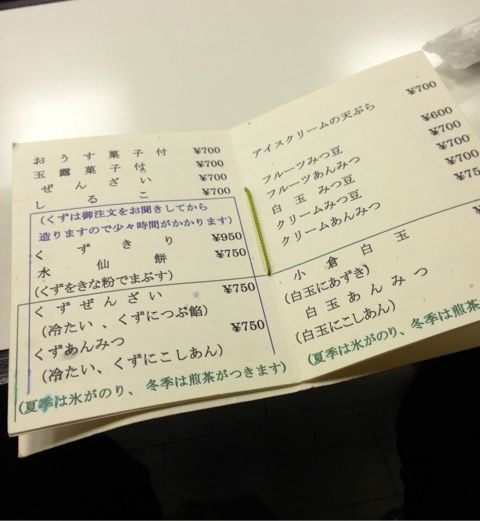 おうす菓子付 ¥700
玉露菓子付 ¥700
ぜんざい ¥700
しるこ ¥700
(くずは御注文をお聞きしてから
造りますので少々時間がかかります)
くずきり ¥950
水仙餅 ¥750
(くずをきな粉でまぶす)
くずぜんざい ¥750
(冷たい、くずにつぶ餡)
くずあんみつ ¥750
(冷たい、くずにこしあん)
(夏季は氷がのり、冬季は煎茶がつきます)
アイスクリームの天ぷら ¥700
フルーツみつ豆 ¥600
フルーツあんみつ ¥700
白玉みつ豆 ¥700
クリームみつ豆 ¥700
クリームあんみつ
小倉白玉
(白玉にあずき)
白玉あんみつ
(白玉にこしあん)
(夏季は氷がのり、冬季は煎茶